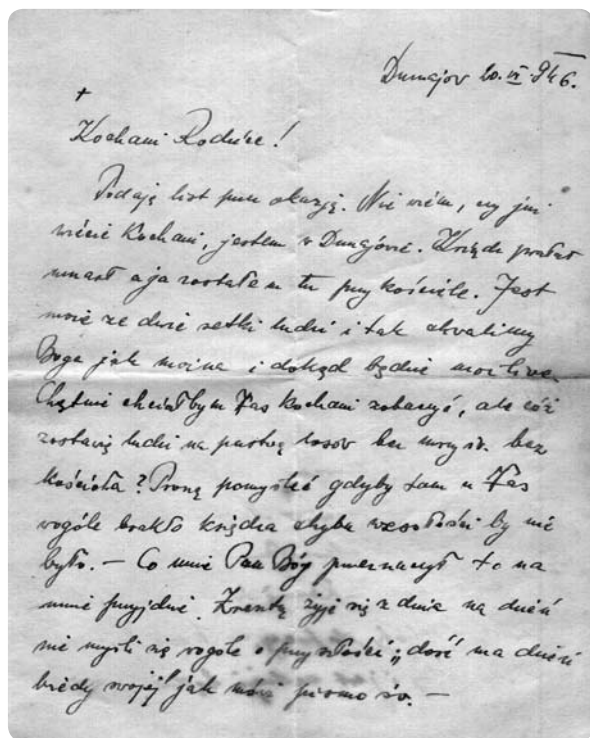 Dunajov 20.VI.946.
+
Kochani Rodzice!
Podaję list przez okazję. Nie wiem, czy już
wiecie Kochani, jestem w Dunajowie. Ksiądz prałat
umarł a ja zostałem tu przy kościele. Jest
może ze dwie setki ludzi i tak chwalimy
Boga jak można i dokąd będzie możliwe.
Chętnie chciałbym Was kochani zobaczyć, ale cóż
zostawię ludzi na pastwę losów bez mszy św. bez
kościoła? Proszę pomyśleć gdyby tam u Was
wogóle brakło księdza chyba wesołości by nie
było. — Co mnie Pan Bóg przeznaczył to na
mnie przyjdzie. Zresztą żyje się z dnia na dzień
nie myśli się wogóle o przyszłości; „dość ma dzień
biedy swojej" jak mówi pismo św. —